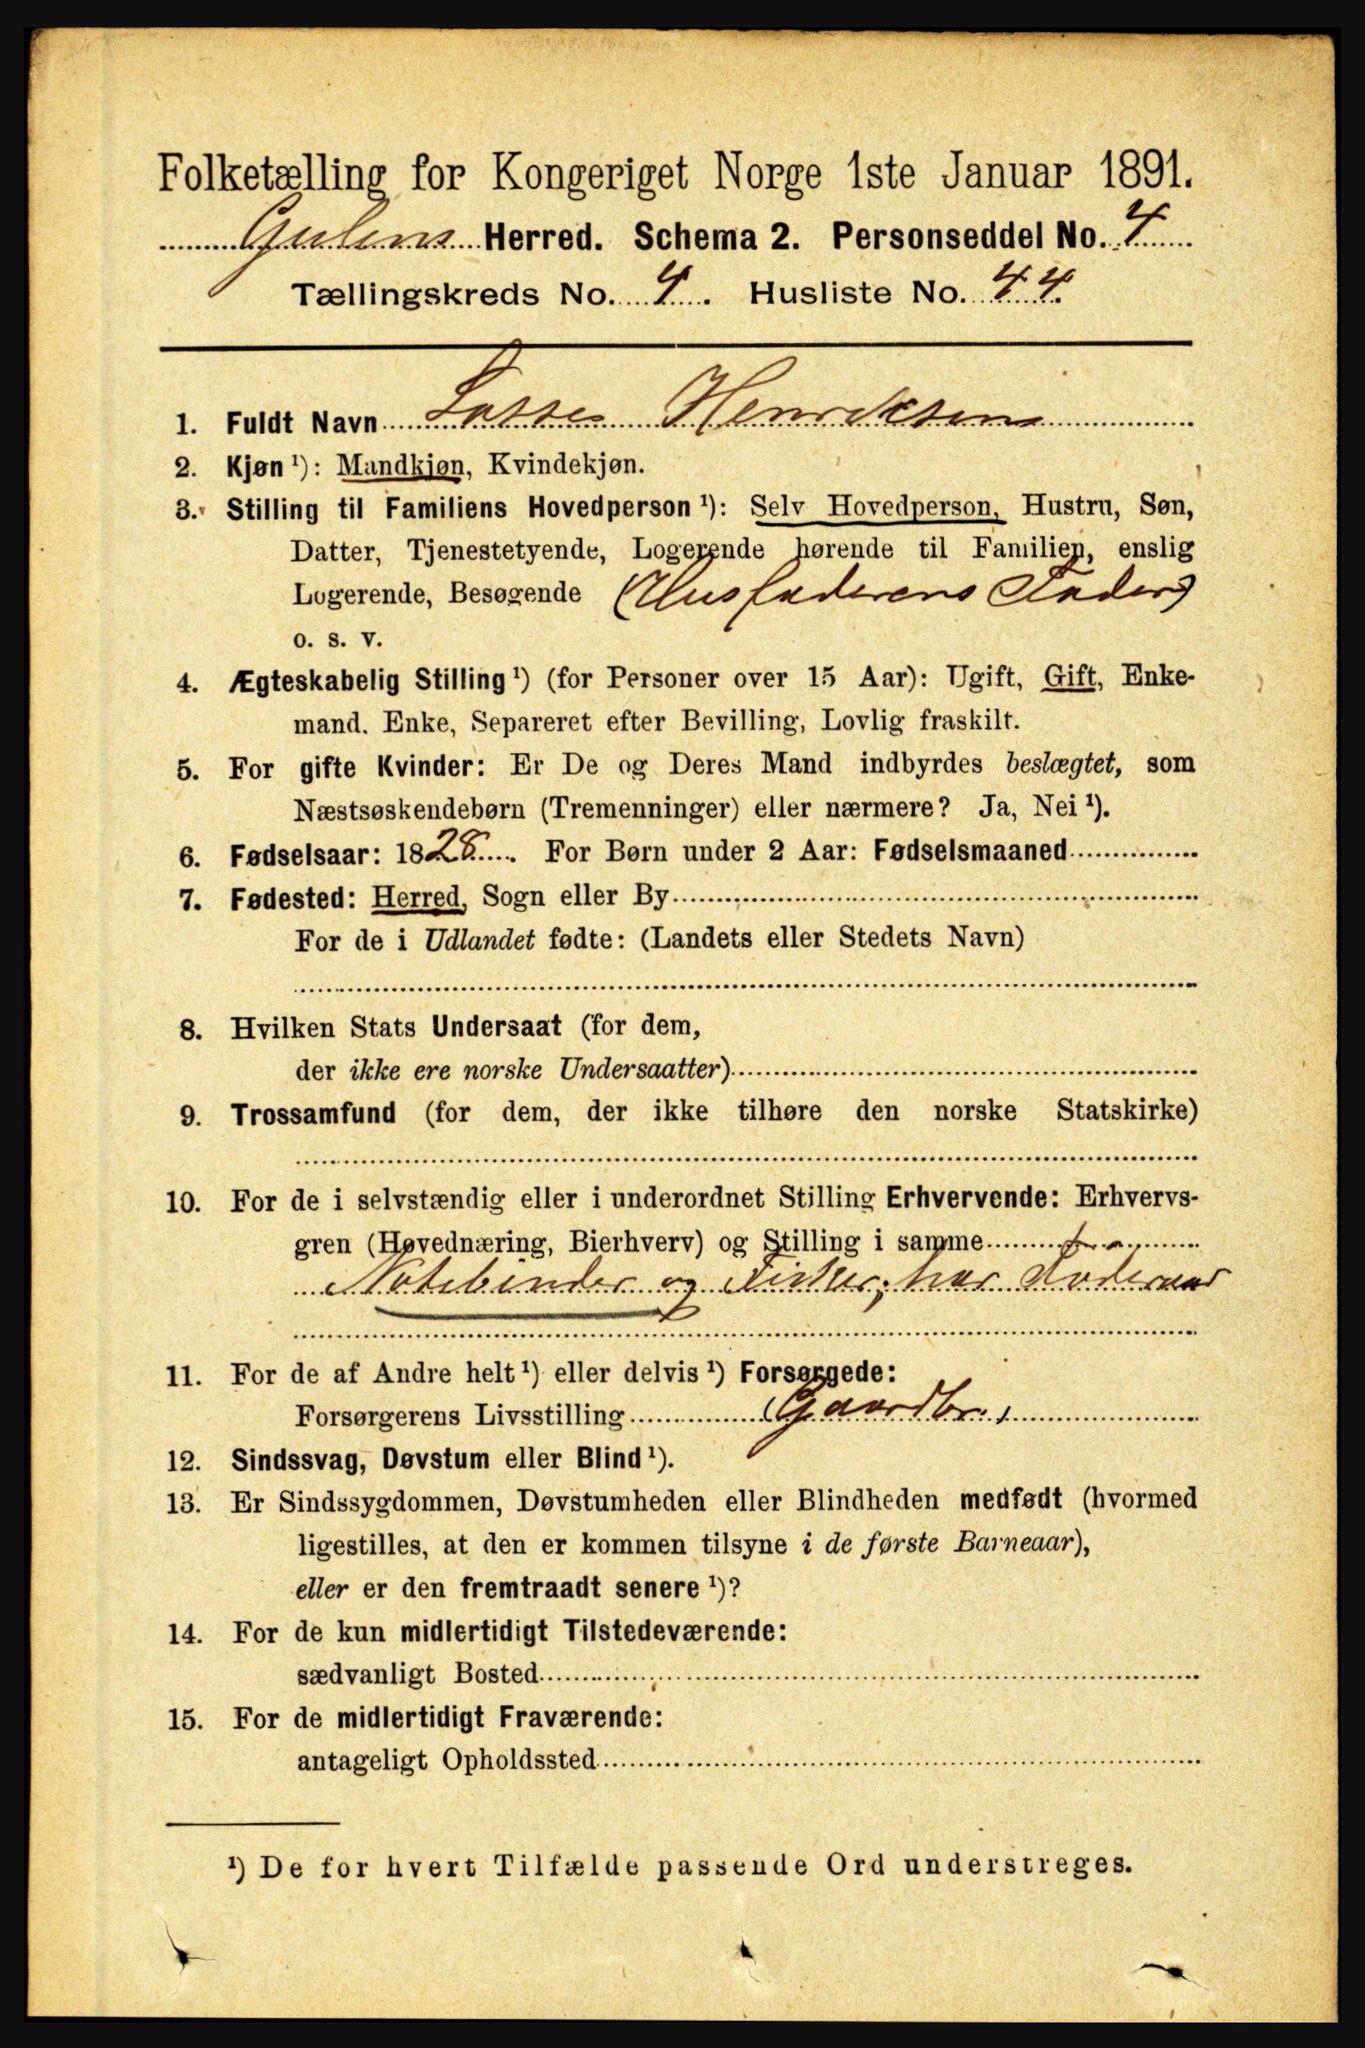 Folketælling for Kongeriget Norge 1ste Januar 1891.
Gulens Herred. Schema 2. Personseddel No. 4
Tællingskreds No. 4. Husliste No. 44.
1. Fuldt Navn Lasse Henriksen
2. Kjøn ¹): Mandkjøn, Kvindekjøn.
3. Stilling til Familiens Hovedperson ¹): Selv Hovedperson, Hustru, Søn,
Datter, Tjenestetyende, Logerende hørende til Familien, enslig
Logerende, Besøgende (Husfaderens Fader)
o. s. v.
4. Ægteskabelig Stilling ¹) (for Personer over 15 Aar): Ugift, Gift, Enke-
mand. Enke, Separeret efter Bevilling, Lovlig fraskilt.
5. For gifte Kvinder: Er De og Deres Mand indbyrdes beslægtet, som
Næstsøskendebørn (Tremenninger) eller nærmere? Ja, Nei ¹).
6. Fødselsaar: 1828. For Børn under 2 Aar: Fødselsmaaned
7. Fødested: Herred, Sogn eller By
For de i Udlandet fødte: (Landets eller Stedets Navn)
8. Hvilken Stats Undersaat (for dem,
der ikke ere norske Undersaatter)
9. Trossamfund (for dem, der ikke tilhøre den norske Statskirke)
10. For de i selvstændig eller i underordnet Stilling Erhvervende: Erhvervs-
gren (Hovednæring, Bierhverv) og Stilling i samme
Notebinder og Fisker, har Foderaad
11. For de af Andre helt ¹) eller delvis ¹) Forsørgede:
Forsørgerens Livsstilling (Gaardbr.
12. Sindssvag, Døvstum eller Blind ¹).
13. Er Sindssygdommen, Døvstumheden eller Blindheden medfødt (hvormed
ligestilles, at den er kommen tilsyne i de første Barneaar),
eller er den fremtraadt senere ¹)?
14. For de kun midlertidigt Tilstedeværende:
sædvanligt Bosted
15. For de midlertidigt Fraværende:
antageligt Opholdssted
¹) De for hvert Tilfælde passende Ord understreges.